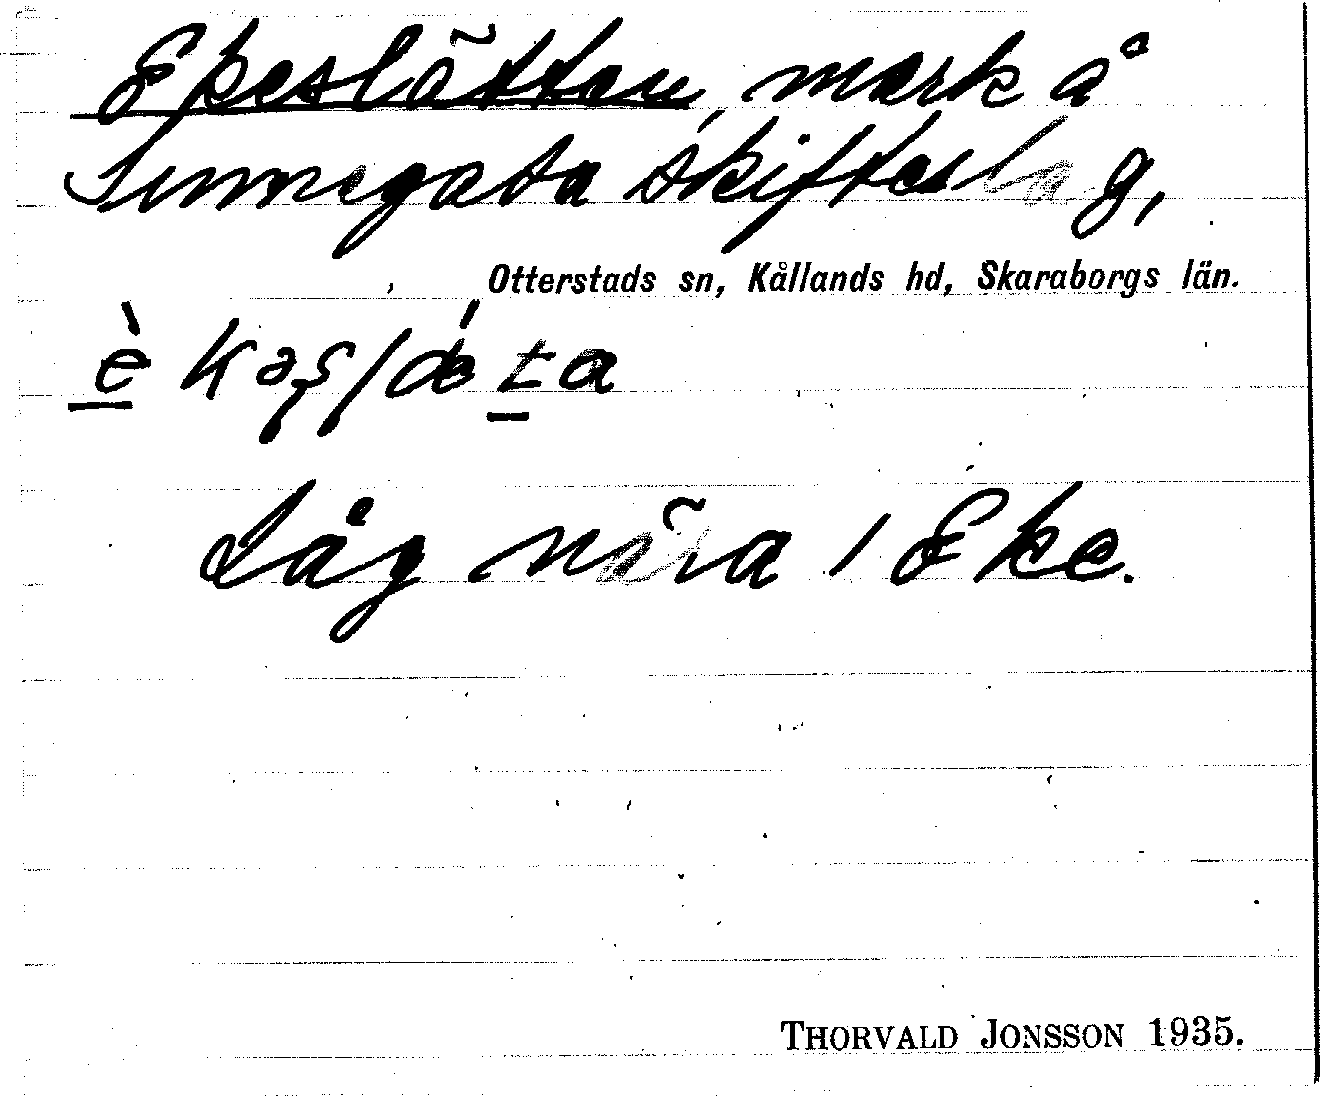 Ekeslätten, mark å
Sunnegata skifteslag,
Otterstads sn, Kållands hd, Skaraborgs län.
Låg nära / Eke.
THORVALD JONSSON 1935.